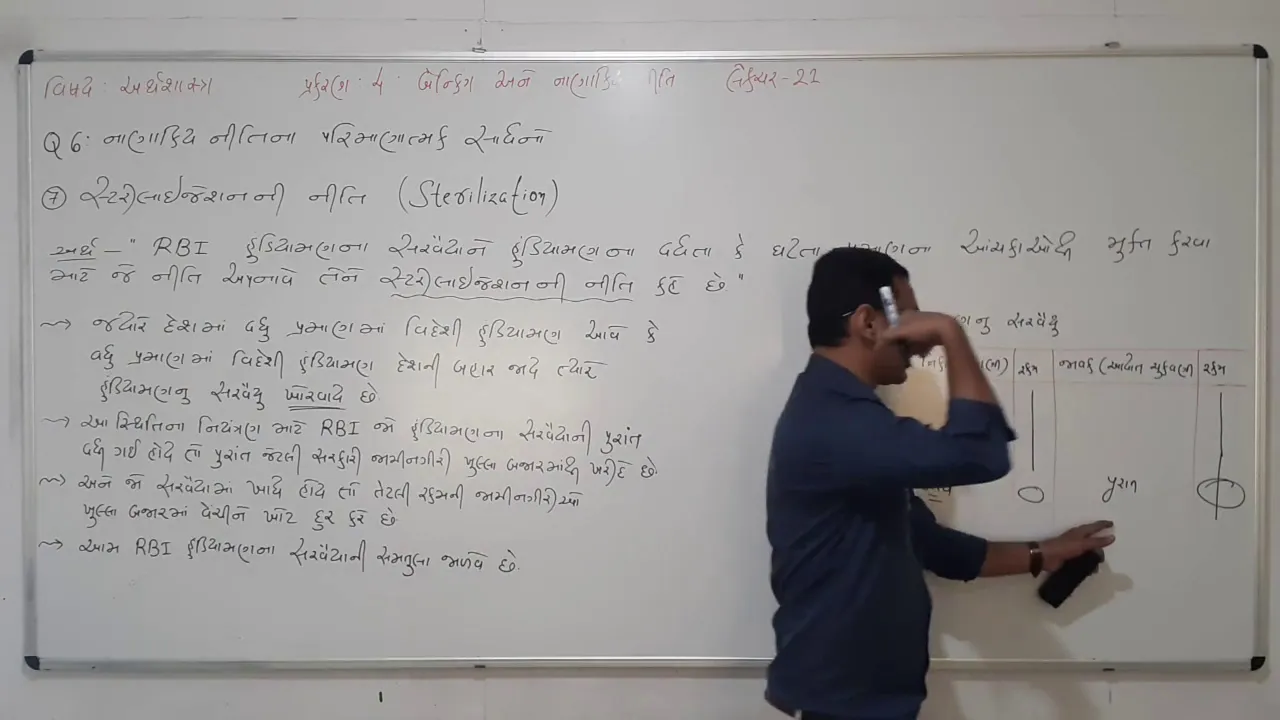 વિષય : અર્થશાસ્ત્ર પ્રકરણ : 4 : બેન્કિંગ અને નાણાકિય નીતિ લેક્ચર - 22
Q 6 : નાણાકિય નીતિના પરિમાણાત્મક સાધનો
7 સ્ટરીલાઇજેશનની નીતિ (Sterilization)
અર્થ - " RBI હુંડિયામણના સરવૈયાને હુંડિયામણના વધતા કે ઘટતા પ્રમાણના આંચકાઓથી મુક્ત કરવા
માટે જે નીતિ અપનાવે તેને સ્ટરીલાઇજેશનની નીતિ કહે છે "
જ્યારે દેશમાં વધુ પ્રમાણમાં વિદેશી હુંડિયામણ આવે કે
વધુ પ્રમાણમાં વિદેશી હુંડિયામણ દેશની બહાર જાય ત્યારે
હુંડિયામણનુ સરવૈયુ ખોરવાય છે.
આ સ્થિતિના નિયંત્રણ માટે RBI જો હુંડિયામણના સરવૈયાની પુરાંત
વધી ગઈ હોય તો પુરાંત જેટલી સરકારી જામીનગીરી ખુલ્લા બજારમાંથી ખરીદે છે.
અને જો સરવૈયામાં ખાધ હોય તો તેટલી રકમની જામીનગીરીઓ
ખુલ્લા બજારમાં વેચીને ખોટ દુર કરે છે.
આમ RBI હુંડિયામણના સરવૈયાની સમતુલા જાળવે છે.
સરવૈયુ
રકમ જાવક (આયાત ચુકવણી) રકમ
પુરાંત